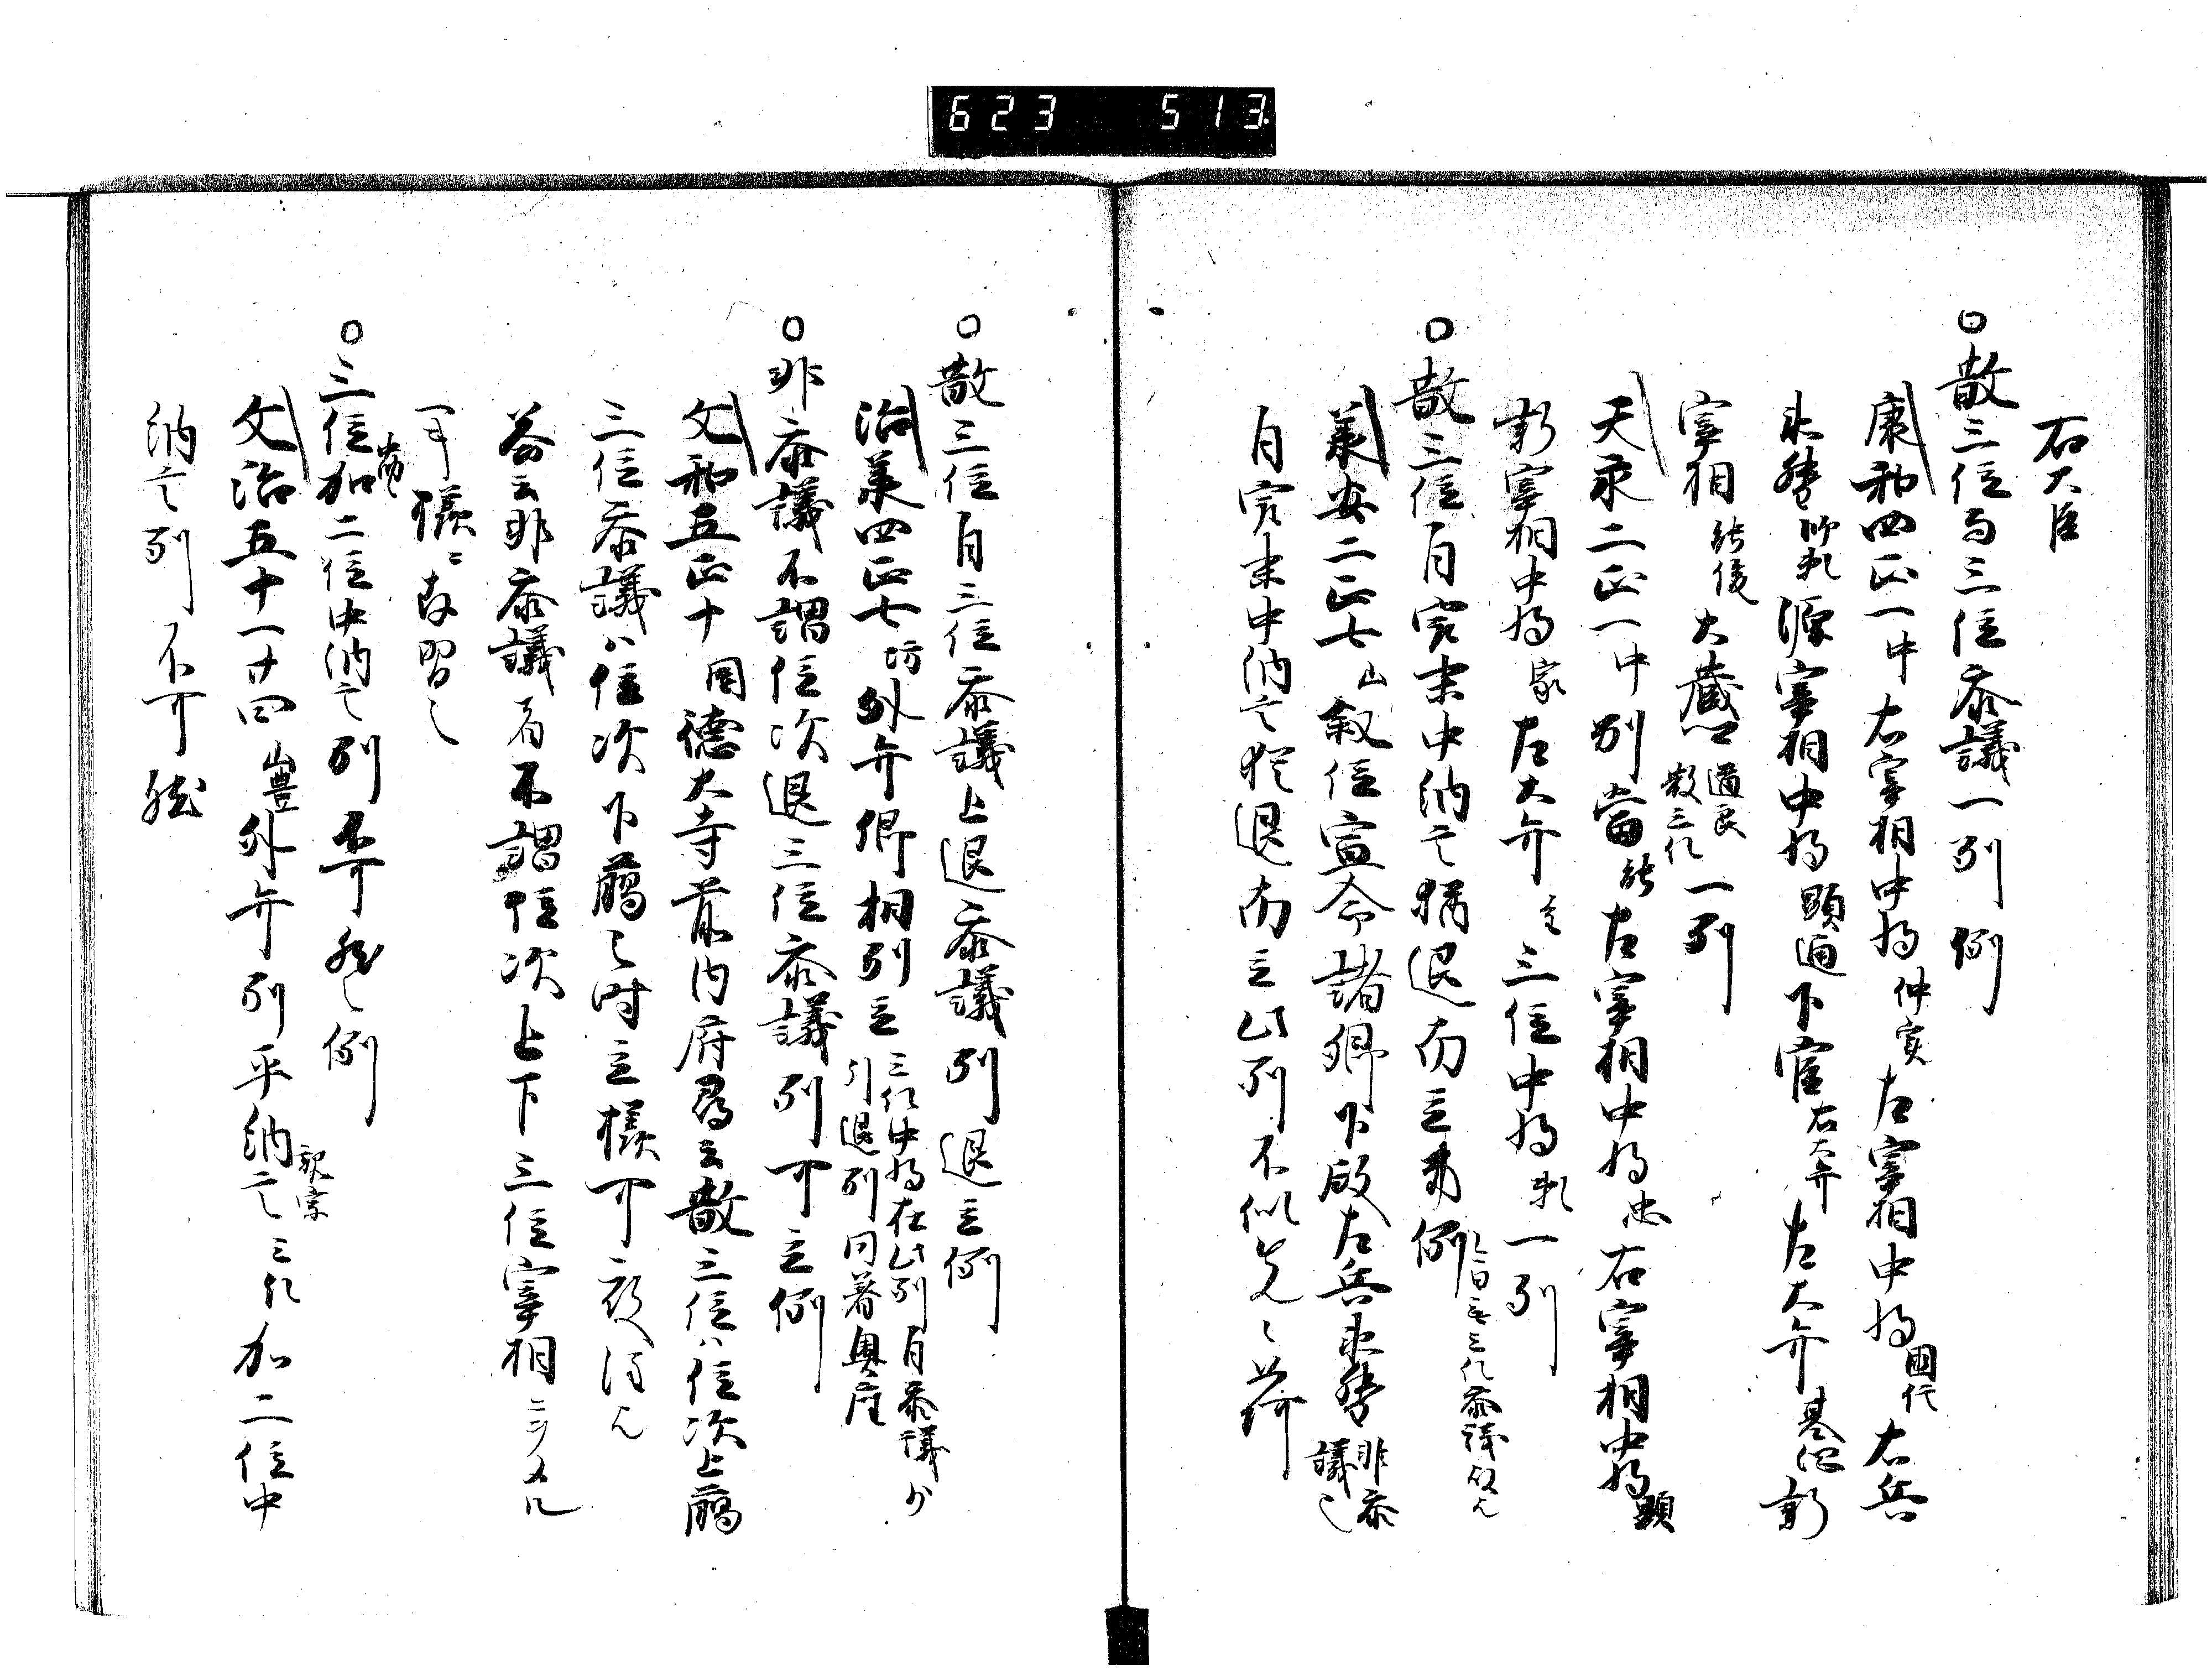 623 513
右大臣
○散三位与三位参議一列例
康和四正一中右宰相中将仲実左宰相中将国信右兵
衛督師頼源宰相中将顕通下官右大弁左大弁基綱新
宰相能俊大蔵卿道良散三位一列
天承二正一中別当左宰相中将忠右宰相中将顕
新宰相中将家左大弁三位中将頼一列
○散三位自完末中納言猶退而立来例
承安二正七山叙位宣命諸卿下殿左兵衛督非参議也
自完末中納言猶退而立此列不似先々
○散三位自三位参議上退参議列退立例
治承四正七坊外弁卿相列立三位中将在此列自参議少引退列同著奥座
○非参議不謂位次退三位参議列可立例
文和五正十同徳大寺前内府尋云散三位ハ位次上臈
三位参議ハ位次下臈之時立様可意得候
答云非参議者不謂位次上下三位宰相ニ
可存習之
○三位加二位中納言列不可然之例
文治五十一廿四山豊外弁列平納言親宗三位加二位中
納言列不可然